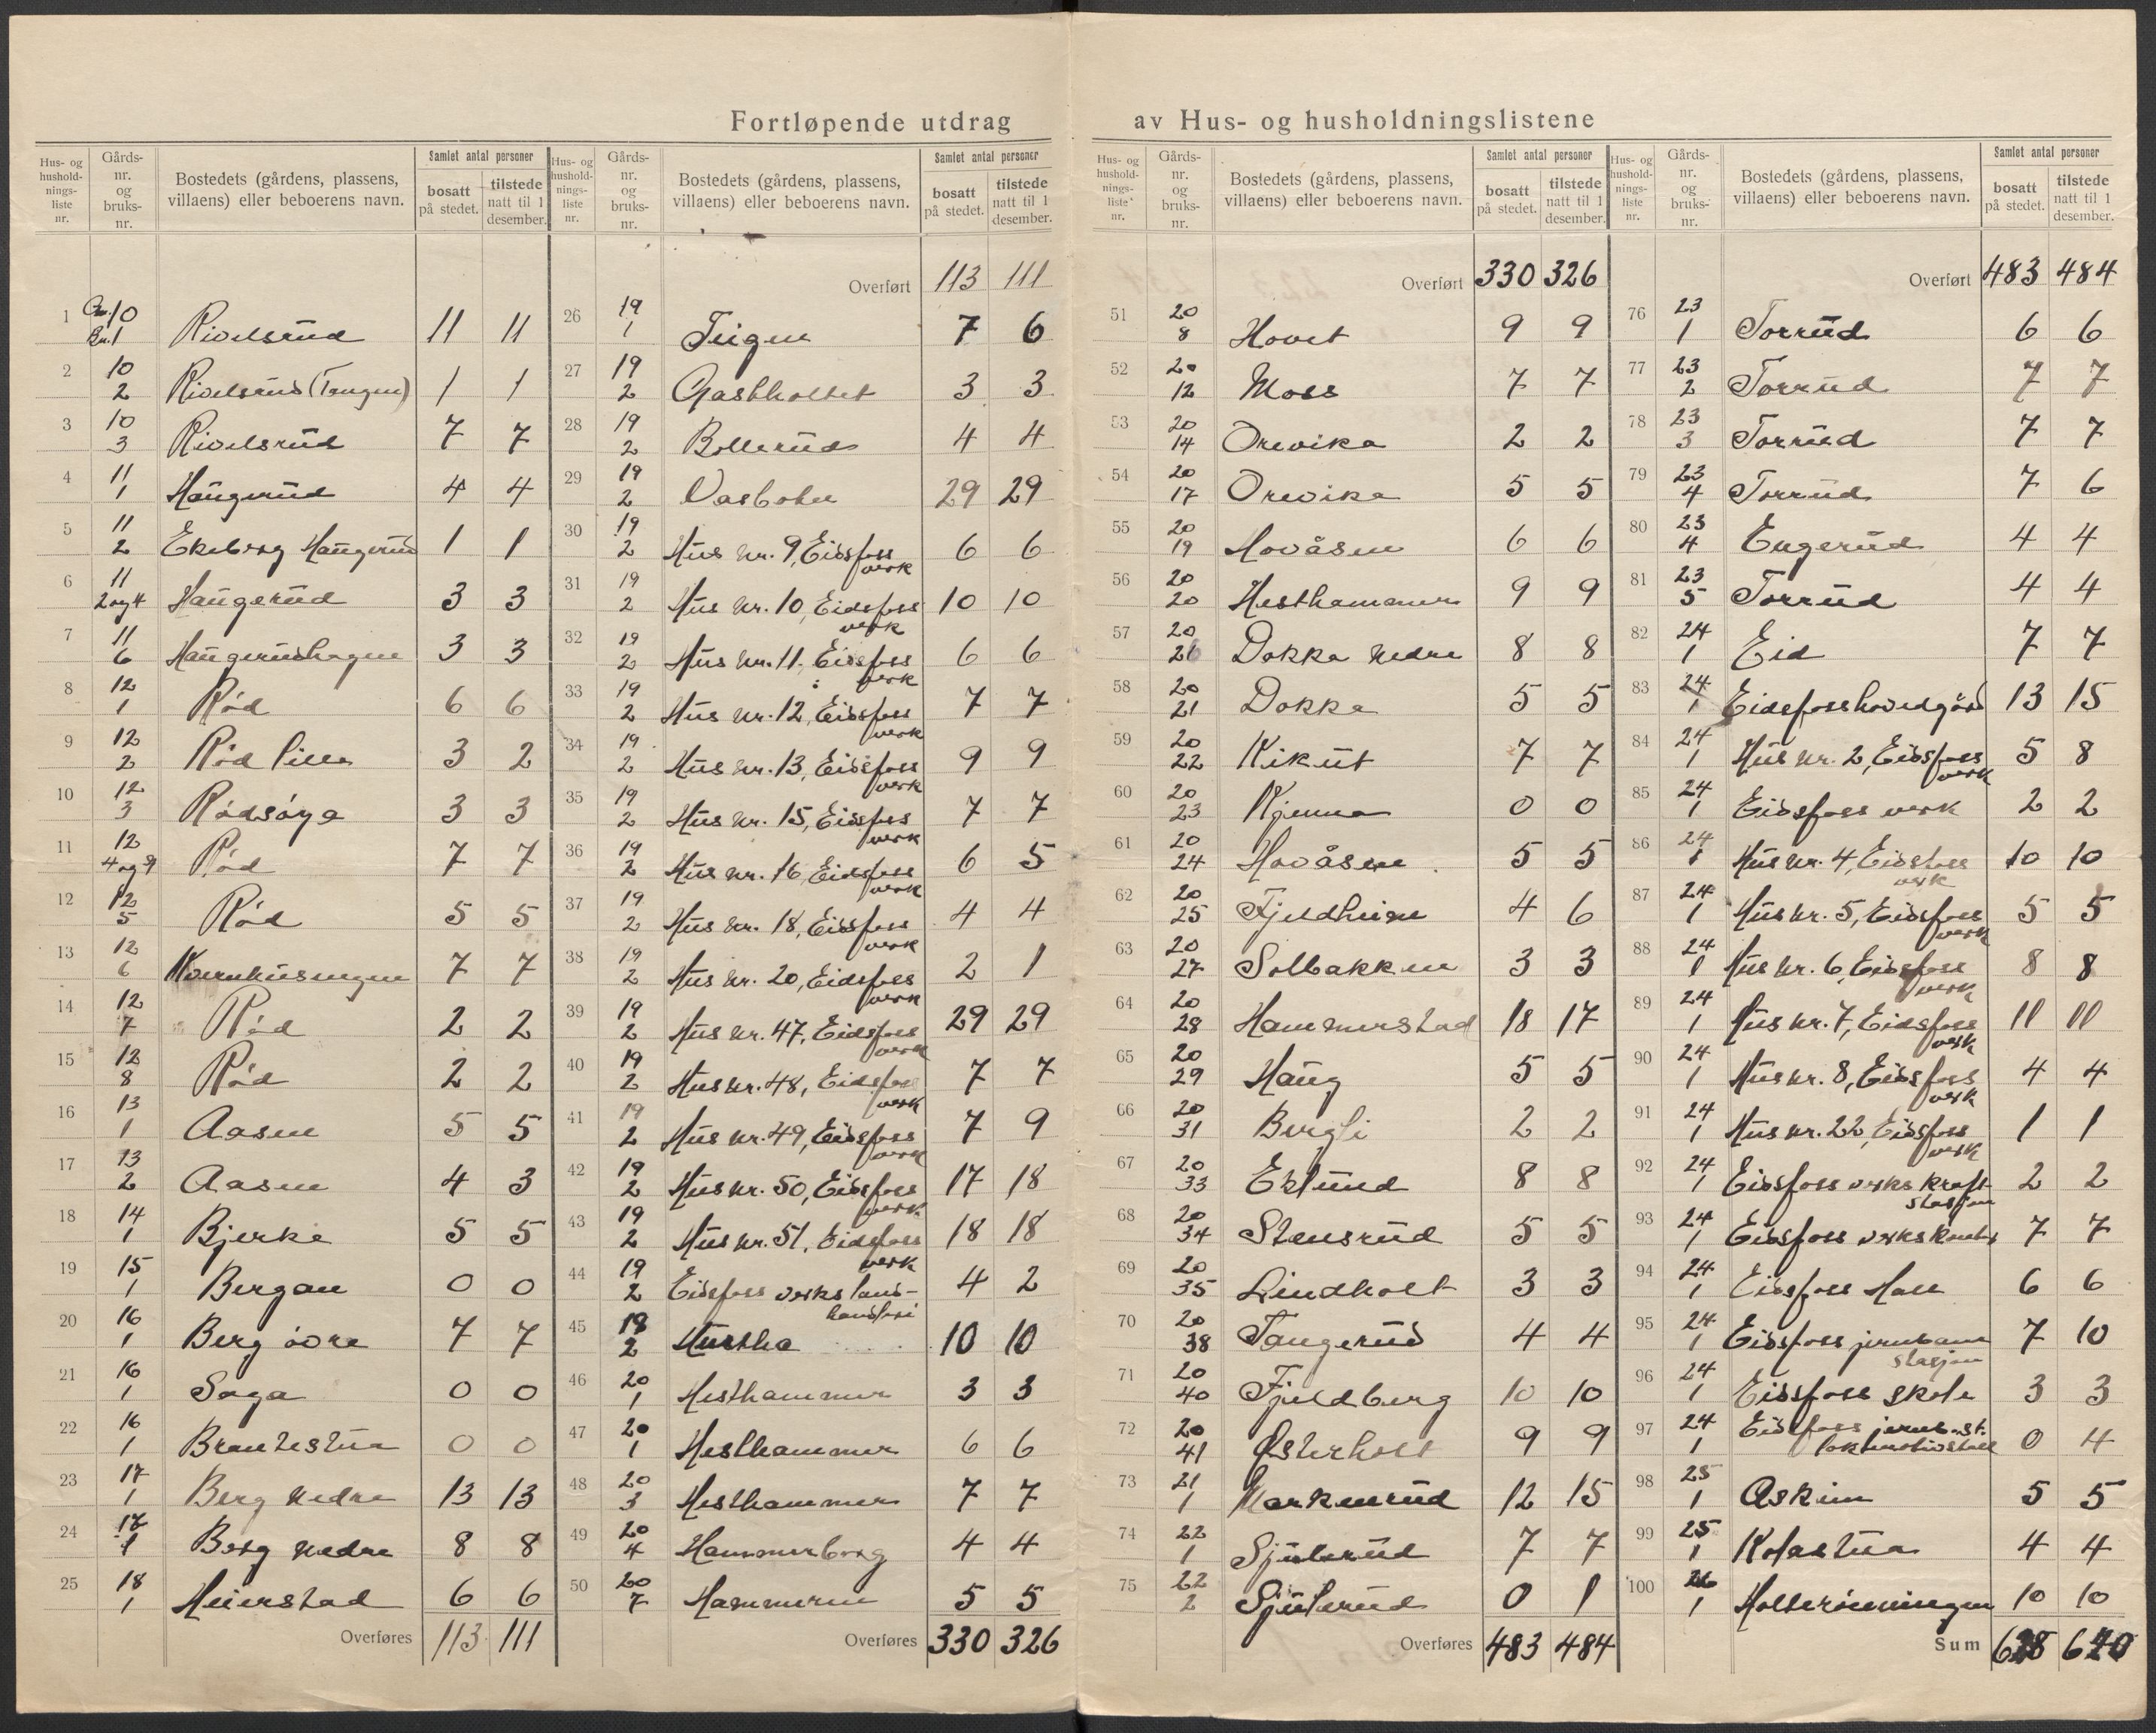 Fortløpende utdrag av Hus- og husholdningslistene
Hus- og husholdnings-liste nr. Gårds-nr. og bruks-nr. Bostedets (gårdens, plassens, villaens) eller beboerens navn. Samlet antal personer bosatt på stedet. tilstede natt til 1 desember.
1 Gn. 10 Bn. 1 Rivelsrud 11 11
2 10 2 Rivelsrud (Tangen) 1 1
3 10 3 Rivelsrud 7 7
4 11 1 Haugerud 4 4
5 11 2 Ekeborg Haugerud 1 1
6 11 2 og 4 Haugerud 3 3
7 11 6 Haugerudhagen 3 3
8 12 1 Rød 6 6
9 12 2 Rød lille 3 2
10 12 3 Rødsøya 3 3
11 12 4 og 9 Rød 7 7
12 12 5 Rød 5 5
13 12 6 Kvernhusengen 7 7
14 12 7 Rød 2 2
15 12 8 Rød 2 2
16 13 1 Aasen 5 5
17 13 2 Aasen 4 3
18 14 1 Bjerke 5 5
19 15 1 Bergan 0 0
20 16 1 Berg øvre 7 7
21 16 1 Saga 0 0
22 16 1 Brantestua 0 0
23 17 1 Berg nedre 13 13
24 17 1 Berg nedre 8 8
25 18 1 Heierstad 6 6
Overføres 113 111
Hus- og husholdnings-liste nr. Gårds-nr. og bruks-nr. Bostedets (gårdens, plassens, villaens) eller beboerens navn. Samlet antal personer bosatt på stedet. tilstede natt til 1 desember.
Overført 113 111
26 19 1 Teigen 7 6
27 19 2 Gasbholtet 3 3
28 19 2 Bollerud 4 4
29 19 2 Vasbotn 29 29
30 19 2 Hus nr. 9, Eidsfoss verk 6 6
31 19 2 Hus nr. 10, Eidsfoss verk 10 10
32 19 2 Hus nr. 11, Eidsfoss verk 6 6
33 19 2 Hus nr. 12, Eidsfoss verk 7 7
34 19 2 Hus nr. 13, Eidsfoss verk 9 9
35 19 2 Hus nr. 15, Eidsfoss verk 7 7
36 19 2 Hus nr. 16, Eidsfoss verk 6 5
37 19 2 Hus nr. 18, Eidsfoss verk 4 4
38 19 2 Hus nr. 20, Eidsfoss verk 2 1
39 19 2 Hus nr. 47, Eidsfoss verk 29 29
40 19 2 Hus nr. 48, Eidsfoss verk 7 7
41 19 2 Hus nr. 49, Eidsfoss verk 7 9
42 19 2 Hus nr. 50, Eidsfoss verk 17 18
43 19 2 Hus nr. 51, Eidsfoss verk 18 18
44 19 2 Eidsfoss verks land-handleri 4 2
45 19 2 10 10
46 20 1 Hesthammer 3 3
47 20 1 Hesthammer 6 6
48 20 3 Hesthammer 7 7
49 20 4 Hammerborg 4 4
50 20 7 Hammeren 5 5
Overføres 330 326
Hus- og husholdnings-liste nr. Gårds-nr. og bruks-nr. Bostedets (gårdens, plassens, villaens) eller beboerens navn. Samlet antal personer bosatt på stedet. tilstede natt til 1 desember.
Overført 330 326
51 20 8 Hovet 9 9
52 20 12 Moss 7 7
53 20 14 Orevika 2 2
54 20 17 Orevika 5 5
55 20 19 Hovåsen 6 6
56 20 20 Hesthammer 9 9
57 20 Dokka nedre 8 8
58 20 21 Dokka 5 5
59 20 22 Kikut 7 7
60 20 23 Kjenna 0 0
61 20 24 Hovåsen 5 5
62 20 25 Fjeldheim 4 6
63 20 27 Solbakken 3 3
64 20 28 Hammerstad 18 17
65 20 29 Haug 5 5
66 20 31 Bergli 2 2
67 20 33 Eklund 8 8
68 20 34 Stensrud 5 5
69 20 35 Lindholt 3 3
70 20 38 Tangerud 4 4
71 20 40 Fjeldberg 10 10
72 20 41 Østerholt 9 9
73 21 1 Markerud 12 15
74 22 1 Sjulerud 7 7
75 22 2 Sjulerud 0 1
Overføres 483 484
Hus- og husholdnings-liste nr. Gårds-nr. og bruks-nr. Bostedets (gårdens, plassens, villaens) eller beboerens navn. Samlet antal personer bosatt på stedet. tilstede natt til 1 desember.
Overført 483 484
76 23 1 Torrud 6 6
77 23 2 Torrud 7 7
78 23 3 Torrud 7 7
79 23 4 Torrud 7 6
80 23 4 Engerud 4 4
81 23 5 Torrud 4 4
82 24 1 Eid 7 7
83 24 1 Eidsfosshovedgård 13 15
84 24 1 Hus nr. 2, Eidsfoss verk 5 8
85 24 1 Eidsfoss verk 2 2
86 24 1 Hus nr. 4, Eidsfoss verk 10 10
87 24 1 Hus nr. 5, Eidsfoss verk 5 5
88 24 1 Hus nr. 6, Eidsfoss verk 8 8
89 24 1 Hus nr. 7, Eidsfoss verk 11 11
90 24 1 Hus nr. 8, Eidsfoss verk 4 4
91 24 1 Hus nr. 22, Eidsfoss verk 1 1
92 24 1 Eidsfoss verks kraft stasjon 2 2
93 24 1 Eidsfoss verks kontor 7 7
94 24 1 Eidsfoss 6 6
95 24 1 Eidsfoss jernbane stasjon 7 10
96 24 1 Eidsfoss skole 3 3
97 24 1 Eidsfoss jernb.st. lokomotivstall 0 4
98 25 1 Askim 5 5
99 25 1 Kolastua 4 4
100 26 1 Holterønningen 10 10
Sum